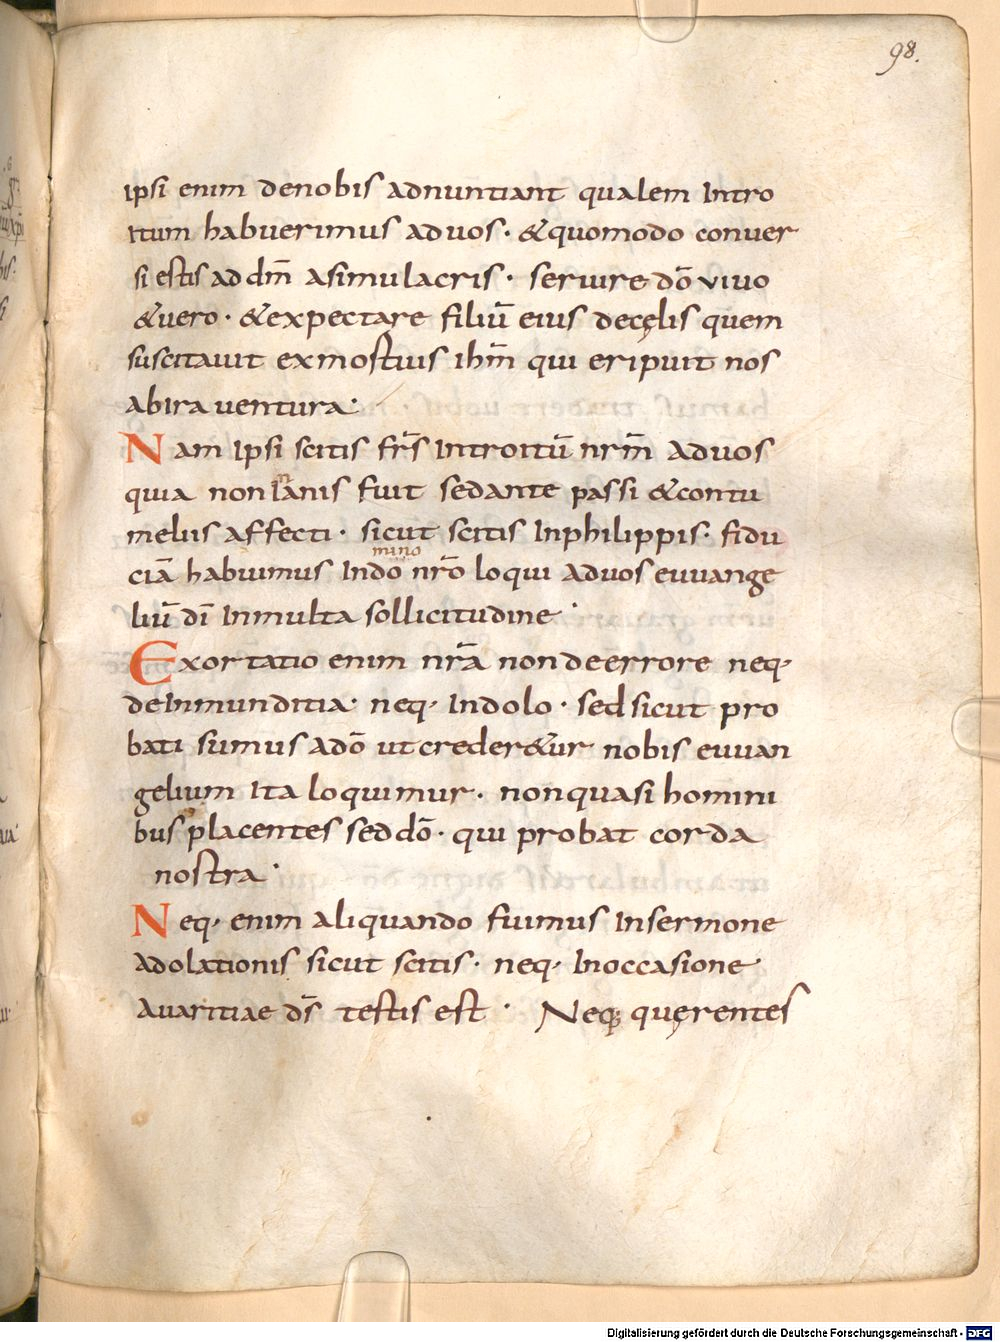 98.
ipsi enim denobis adnuntiant qualem Intro
itum habuerimus aduos · &quomodo conuer
si estis ad dm̄ asimulacris · seruire dō vivo
&uero · &expectare filiū eius decęlis quem
suscitauit exmortuis ihm̄ qui eripuit nos
abira uentura ·
Nam Ipsi scitis fr̄s Introitū nrm̄ aduos
quia non Inanis fuit sedante passi &contu
meliis affecti · sicut scitis Inphilippis · fidu
ciā habuimus Indō nrō loqui aduos euuange
mino
liū dī Inmulta sollicitudine ·
Exortatio enim nrā nondeerrore neq·
deInmunditia · neq· Indolo · sed sicut pro
bati sumus adō utcreder&ur nobis euuan
gelium Ita loquimur · nonquasi homini
bus placentes sed dō · qui probat corda
nostra ·
Neq· enim aliquando fuimus Insermone
adolationis sicut scitis · neq· Inoccasione
auaritiae ds̄ testis est · Neq· quęrentes
Digitalisierung gefördert durch die Deutsche Forschungsgemeinschaft - DFG